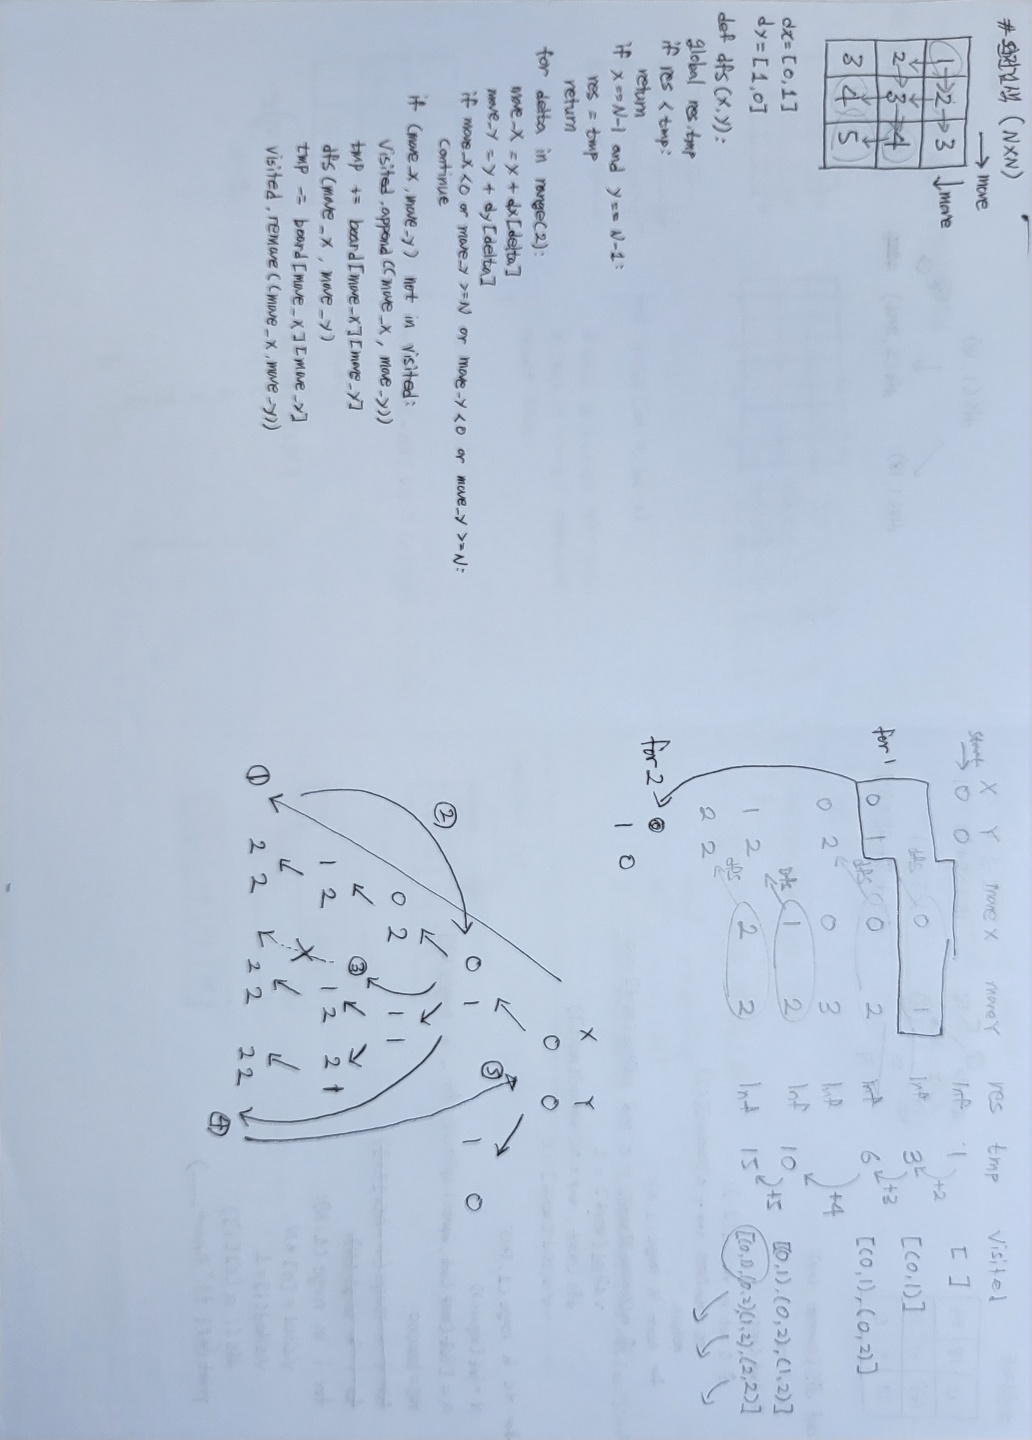 #완전검색 (N×N)
→ move
↓move
1 → 2 → 3
2 → 3 → 4
3 4 5
dx=[0,1]
dy=[1,0]
def dfs(x,y):
global res,tmp
if res < tmp:
return
if x==N-1 and y== N-1:
res = tmp
return
for delta in range(2):
move_x = x + dx[delta]
move_y = y + dy[delta]
if move_x<0 or move_y>=N or move_y<0 or move_y>=N:
continue
if (move_x, move_y) not in visited:
visited.append((move_x, move_y))
tmp += board[move_x][move_y]
dfs(move_x, move_y)
tmp -= board[move_x][move_y]
visited.remove((move_x, move_y))
X Y move X move Y res tmp visited
start → 0 0 Inf 1 [ ]
+2
dfs 0 1 Inf 3 [(0,1)]
+3
for 1 0 1 dfs 0 2 Inf 6 [(0,1),(0,2)]
0 2 0 3 Inf +4
dfs 1 2 Inf 10 [(0,1),(0,2),(1,2)]
+5
1 2 dfs 2 2 Inf 15 [(0,1),(0,2)(1,2),(2,2)]
2 2
for 2 0
1 0
X Y
0 0
⑤
0 1 1 0
②
0 2 1 1
③
1 2 1 2 2 1
X
① 2 2 2 2 2 2
④